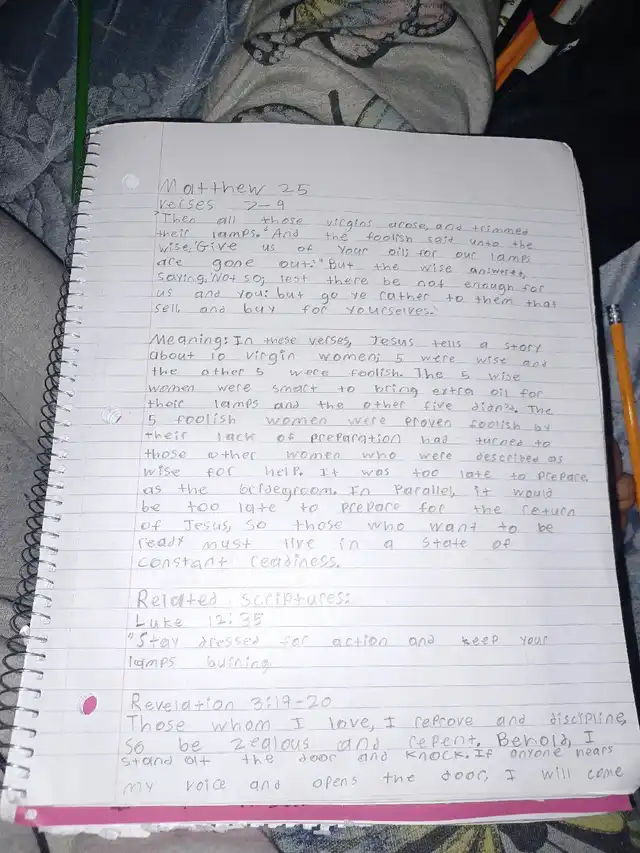 Matthew 25
verses 7-9
"Then all those virgins arose, and trimmed
their lamps. And the foolish said unto the
wise, 'Give us of your oil; for our lamps
are gone out.' But the wise answered,
saying, 'Not so; lest there be not enough for
us and you: but go ye rather to them that
sell, and buy for yourselves.'
Meaning: In these verses, Jesus tells a story
about 10 virgin women; 5 were wise and
the other 5 were foolish. The 5 wise
women were smart to bring extra oil for
their lamps and the other five didn't. The
5 foolish women were proven foolish by
their lack of preparation had turned to
those other women who were described as
wise for help. It was too late to prepare.
as the bridegroom. In parallel, it would
be too late to prepare for the return
of Jesus, so those who want to be
ready must live in a state of
constant readiness.
Related scriptures:
Luke 12:35
"Stay dressed for action and keep your
lamps burning
Revelation 3:19-20
Those whom I love, I reprove and discipline,
so be zealous and repent. Behold, I
stand at the door and knock. If anyone hears
my voice and opens the door, I will come